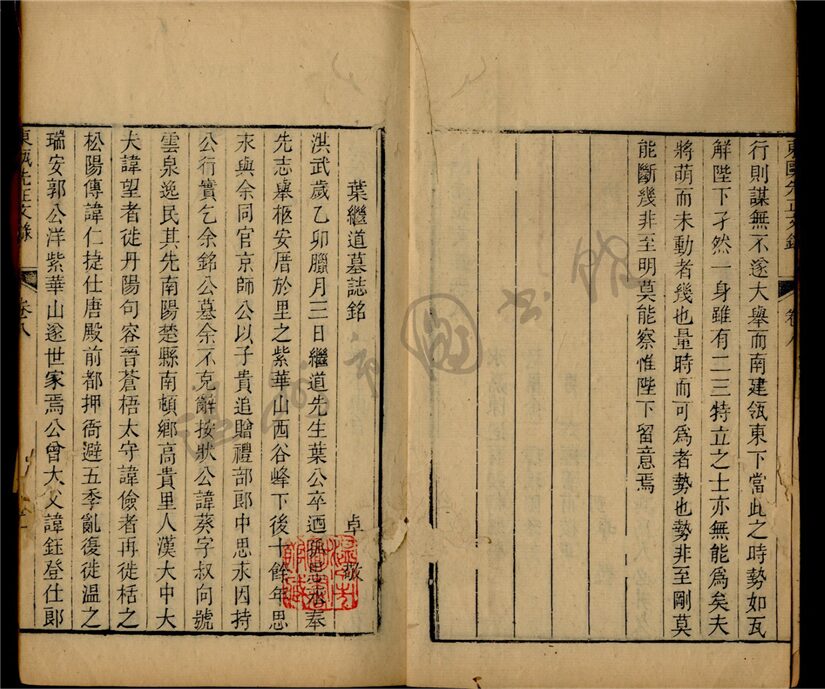 行則謀無不遂大舉而南建瓴東下當此之時勢如瓦
解陛下孑然一身雖有二三特立之士亦無能為矣夫
將萌而未動者幾也量時而可為者勢也勢非至剛莫
能斷幾非至明莫能察惟陛下留意焉
葉繼道墓誌銘
卓敬
洪武歲乙卯臘月三日繼道先生葉公卒迺嗣思添奉
先志舉柩安厝於里之紫華山西谷峰下後十餘年思
求與余同官京師公以子貴追贈禮部郎中思求因持
公行實乞余銘公墓余不克辭按狀公諱葵字叔向號
雲泉逸民其先南陽楚縣南頓鄉高貴里人漢大中大
夫諱望者徙丹陽句容晉蒼梧太守諱儉者再徙栝之
松陽傳諱仁捷仕唐殿前都押衙避五季亂復徙溫之
瑞安郭公洋紫華山遂世家焉公曾大父諱鈺登仕郎
東甌先正文錄
卷八